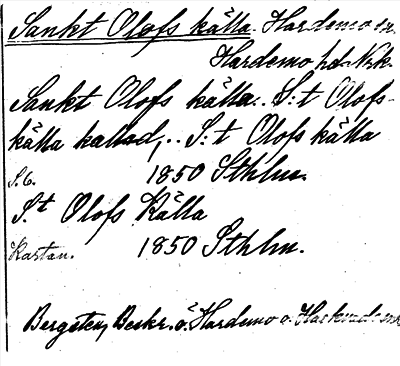 Sankt Olofs källa. Hardemo sn.
Hardemo hd. Nrk.
Sankt Olofs källa.. S:t Olofs-
källa kallad,.. S:t Olofs källa
S.6. 1850 Sthlm.
S.t Olofs Källa
Kartan. 1850 Sthlm.
Bergsten, Beskr. ö. Hardemo o. Hackvads snr